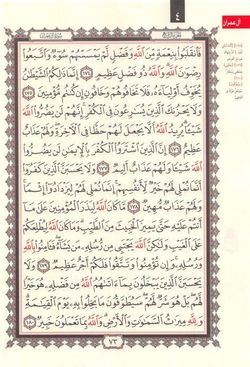 ٤
آل عمران
فَٱنقَلَبُوا۟ بِنِعْمَةٍ مِّنَ ٱللَّهِ وَفَضْلٍ لَّمْ يَمْسَسْهُمْ سُوٓءٌ وَٱتَّبَعُوا۟
رِضْوَٰنَ ٱللَّهِ وَٱللَّهُ ذُو فَضْلٍ عَظِيمٍ ١٧٤ إِنَّمَا ذَٰلِكُمُ ٱلشَّيْطَٰنُ
يُخَوِّفُ أَوْلِيَآءَهُۥ فَلَا تَخَافُوهُمْ وَخَافُونِ إِن كُنتُم مُّؤْمِنِينَ ١٧٥
وَلَا يَحْزُنكَ ٱلَّذِينَ يُسَٰرِعُونَ فِى ٱلْكُفْرِ إِنَّهُمْ لَن يَضُرُّوا۟ ٱللَّهَ
شَيْـًٔا يُرِيدُ ٱللَّهُ أَلَّا يَجْعَلَ لَهُمْ حَظًّا فِى ٱلْـَٔاخِرَةِ وَلَهُمْ عَذَابٌ
عَظِيمٌ ١٧٦ إِنَّ ٱلَّذِينَ ٱشْتَرَوُا۟ ٱلْكُفْرَ بِٱلْإِيمَٰنِ لَن يَضُرُّوا۟
ٱللَّهَ شَيْـًٔا وَلَهُمْ عَذَابٌ أَلِيمٌ ١٧٧ وَلَا يَحْسَبَنَّ ٱلَّذِينَ كَفَرُوٓا۟
أَنَّمَا نُمْلِى لَهُمْ خَيْرٌ لِّأَنفُسِهِمْ إِنَّمَا نُمْلِى لَهُمْ لِيَزْدَادُوٓا۟ إِثْمًا
وَلَهُمْ عَذَابٌ مُّهِينٌ ١٧٨ مَّا كَانَ ٱللَّهُ لِيَذَرَ ٱلْمُؤْمِنِينَ عَلَىٰ مَآ
أَنتُمْ عَلَيْهِ حَتَّىٰ يَمِيزَ ٱلْخَبِيثَ مِنَ ٱلطَّيِّبِ وَمَا كَانَ ٱللَّهُ لِيُطْلِعَكُمْ
عَلَى ٱلْغَيْبِ وَلَٰكِنَّ ٱللَّهَ يَجْتَبِى مِن رُّسُلِهِۦ مَن يَشَآءُ فَـَٔامِنُوا۟ بِٱللَّهِ
وَرُسُلِهِۦ وَإِن تُؤْمِنُوا۟ وَتَتَّقُوا۟ فَلَكُمْ أَجْرٌ عَظِيمٌ ١٧٩ وَلَا
يَحْسَبَنَّ ٱلَّذِينَ يَبْخَلُونَ بِمَآ ءَاتَىٰهُمُ ٱللَّهُ مِن فَضْلِهِۦ هُوَ خَيْرًا
لَّهُم بَلْ هُوَ شَرٌّ لَّهُمْ سَيُطَوَّقُونَ مَا بَخِلُوا۟ بِهِۦ يَوْمَ ٱلْقِيَٰمَةِ
وَلِلَّهِ مِيرَٰثُ ٱلسَّمَٰوَٰتِ وَٱلْأَرْضِ وَٱللَّهُ بِمَا تَعْمَلُونَ خَبِيرٌ ١٨٠
٧٣